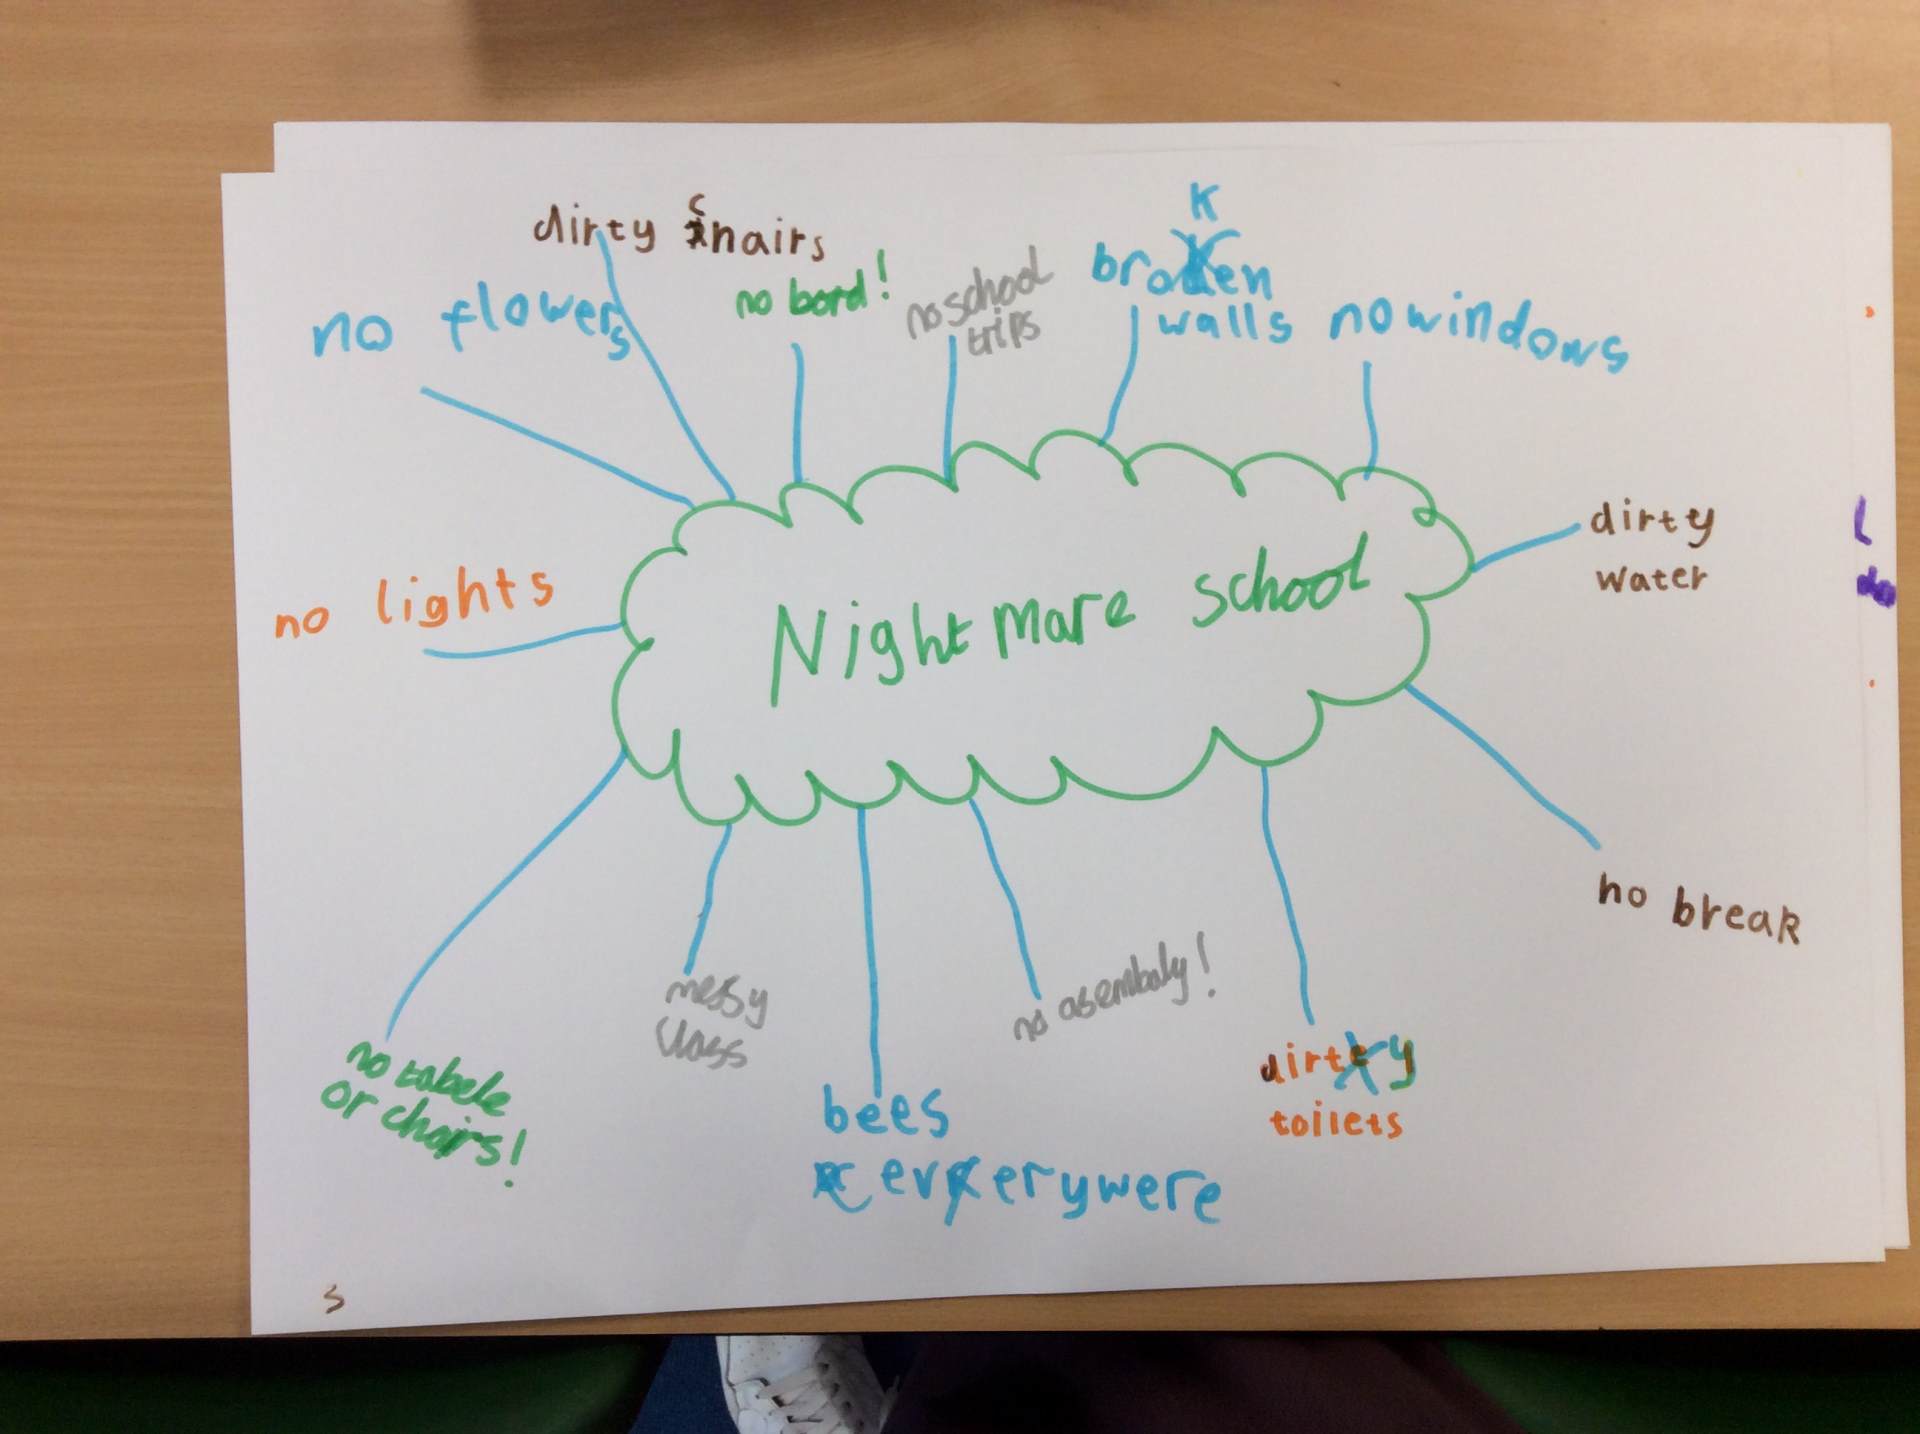 dirty chairs
no flowers
no bord!
no school
trips
broken
walls
no windows
dirty
water
no lights
Nightmare school
no break
no tabele
or chairs!
messy
class
bees
everywere
no asembaly!
dirty
toilets
s